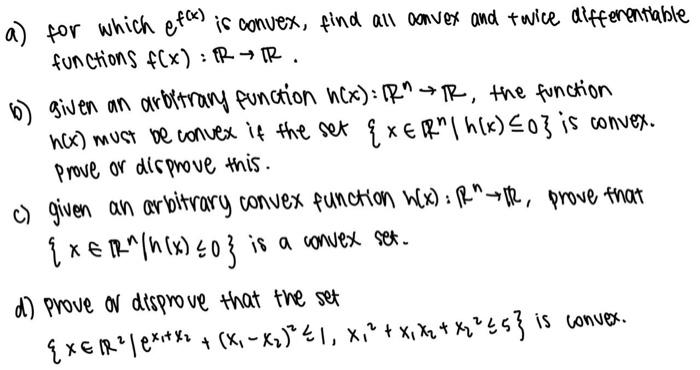 a) for which e^{f(x)} is convex, find all convex and twice differentiable
functions f(x) : ℝ → ℝ .
b) given an arbitrary function h(x): ℝⁿ → ℝ, the function
h(x) must be convex if the set {x ∈ ℝⁿ | h(x) ≤ 0} is convex.
Prove or disprove this.
c) given an arbitrary convex function h(x) : ℝⁿ → ℝ, prove that
{x ∈ ℝⁿ | h(x) ≤ 0} is a convex set.
d) prove or disprove that the set
{x ∈ ℝ² | e^{x₁+x₂} + (x₁ - x₂)² ≤ 1, x₁² + x₁x₂ + x₂² ≤ 5} is convex.